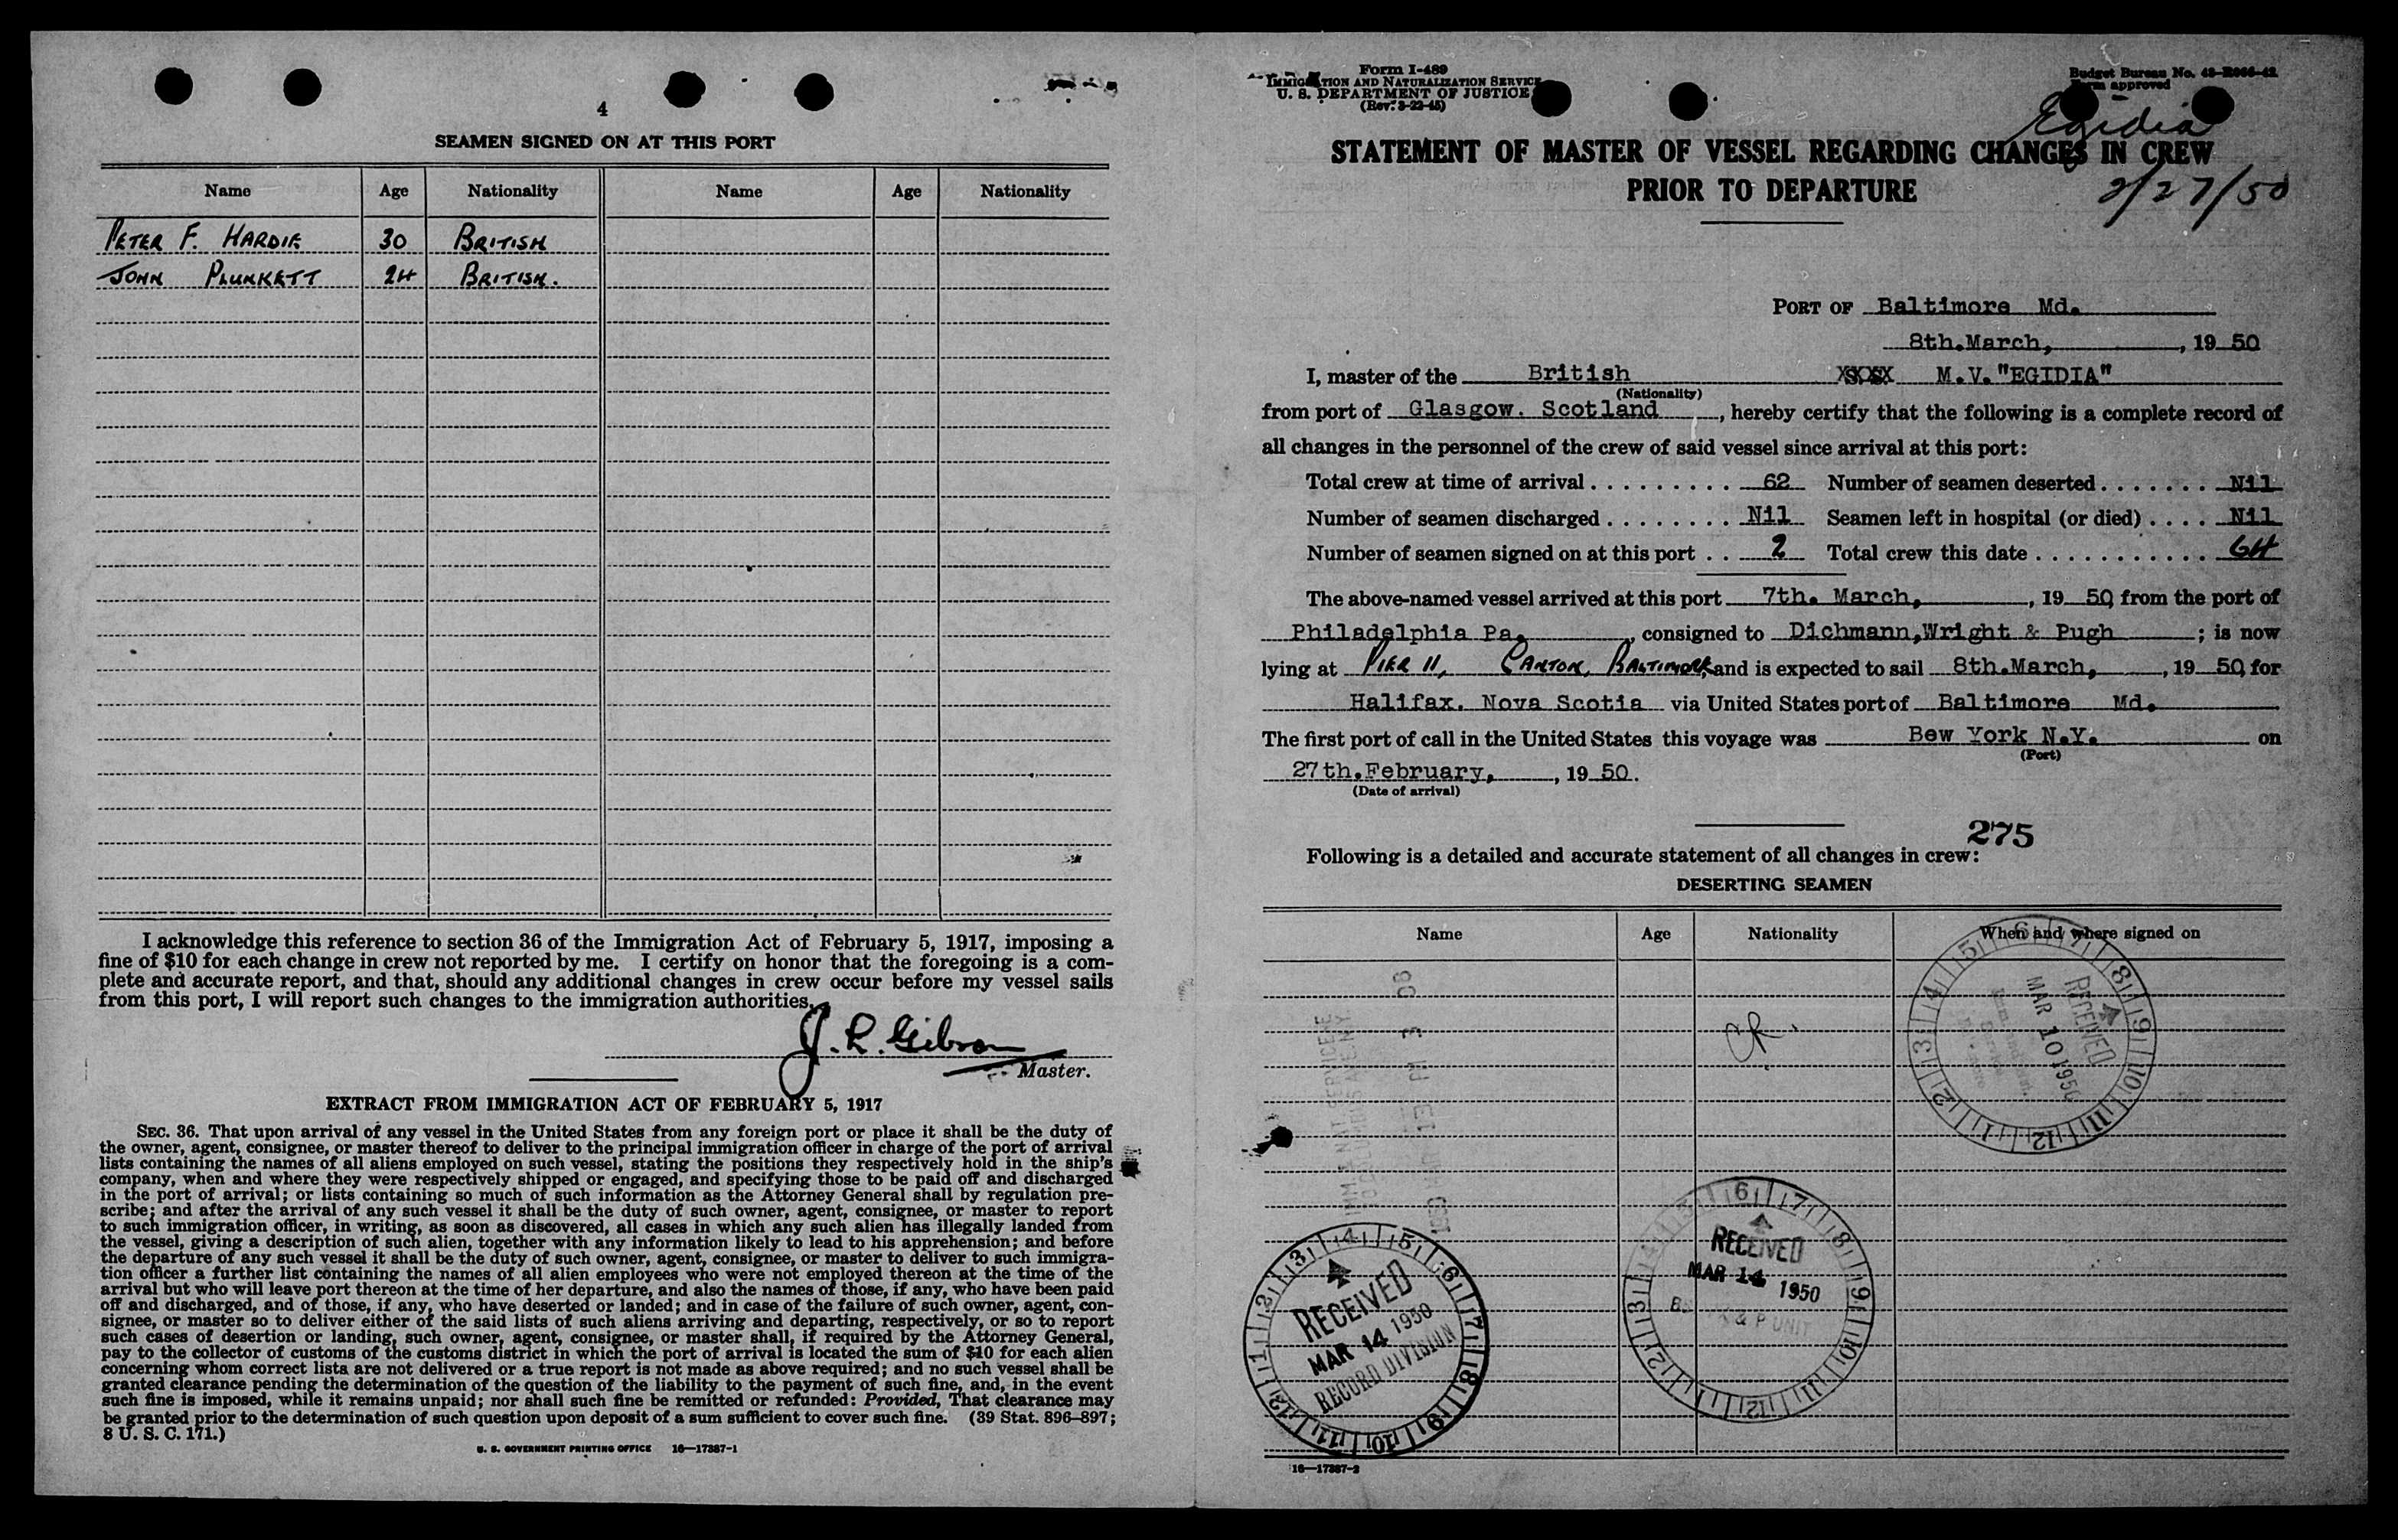 4
SEAMEN SIGNED ON AT THIS PORT
Name Age Nationality Name Age Nationality
PETER F. HARDIE 30 BRITISH
JOHN PLUNKETT 24 BRITISH.
I acknowledge this reference to section 36 of the Immigration Act of February 5, 1917, imposing a
fine of $10 for each change in crew not reported by me. I certify on honor that the foregoing is a com-
plete and accurate report, and that, should any additional changes in crew occur before my vessel sails
from this port, I will report such changes to the immigration authorities.
J. R. Gibson
Master.
EXTRACT FROM IMMIGRATION ACT OF FEBRUARY 5, 1917
SEC. 36. That upon arrival of any vessel in the United States from any foreign port or place it shall be the duty of
the owner, agent, consignee, or master thereof to deliver to the principal immigration officer in charge of the port of arrival
lists containing the names of all aliens employed on such vessel, stating the positions they respectively hold in the ship's
company, when and where they were respectively shipped or engaged, and specifying those to be paid off and discharged
in the port of arrival; or lists containing so much of such information as the Attorney General shall by regulation pre-
scribe; and after the arrival of any such vessel it shall be the duty of such owner, agent, consignee, or master to report
to such immigration officer, in writing, as soon as discovered, all cases in which any such alien has illegally landed from
the vessel, giving a description of such alien, together with any information likely to lead to his apprehension; and before
the departure of any such vessel it shall be the duty of such owner, agent, consignee, or master to deliver to such immigra-
tion officer a further list containing the names of all alien employees who were not employed thereon at the time of the
arrival but who will leave port thereon at the time of her departure, and also the names of those, if any, who have been paid
off and discharged, and of those, if any, who have deserted or landed; and in case of the failure of such owner, agent, con-
signee, or master so to deliver either of the said lists of such aliens arriving and departing, respectively, or so to report
such cases of desertion or landing, such owner, agent, consignee, or master shall, if required by the Attorney General,
pay to the collector of customs of the customs district in which the port of arrival is located the sum of $10 for each alien
concerning whom correct lists are not delivered or a true report is not made as above required; and no such vessel shall be
granted clearance pending the determination of the question of the liability to the payment of such fine, and, in the event
such fine is imposed, while it remains unpaid; nor shall such fine be remitted or refunded: Provided, That clearance may
be granted prior to the determination of such question upon deposit of a sum sufficient to cover such fine. (39 Stat. 896–897;
8 U. S. C. 171.)
U. S. GOVERNMENT PRINTING OFFICE 16—17387-1
Form I-489
IMMIGRATION AND NATURALIZATION SERVICE
U. S. DEPARTMENT OF JUSTICE
(Rev. 3-22-45)
Budget Bureau No. 43-R066-42
Form approved
Egidia
STATEMENT OF MASTER OF VESSEL REGARDING CHANGES IN CREW
PRIOR TO DEPARTURE
2/27/50
PORT OF Baltimore Md.
8th.March, , 19 50
I, master of the British M.V."EGIDIA"
(Nationality)
from port of Glasgow. Scotland , hereby certify that the following is a complete record of
all changes in the personnel of the crew of said vessel since arrival at this port:
Total crew at time of arrival . . . . . . . . . . 62 Number of seamen deserted . . . . . . . Nil
Number of seamen discharged . . . . . . . . Nil Seamen left in hospital (or died) . . . . Nil
Number of seamen signed on at this port . . 2 Total crew this date . . . . . . . . . . . 64
The above-named vessel arrived at this port 7th. March, , 19 50 from the port of
Philadelphia Pa. , consigned to Dichmann,Wright & Pugh ; is now
lying at PIER 11, CANTON, BALTIMORE and is expected to sail 8th.March, , 19 50, for
Halifax. Nova Scotia via United States port of Baltimore Md.
The first port of call in the United States this voyage was Bew York N.Y. on
(Port)
27th.February, , 19 50.
(Date of arrival)
275
Following is a detailed and accurate statement of all changes in crew:
DESERTING SEAMEN
Name Age Nationality When and where signed on
CR.
RECEIVED
MAR 10 1950
RECEIVED
MAR 14 1950
& P UNIT
RECEIVED
MAR 14 1950
RECORD DIVISION
16—17387-2